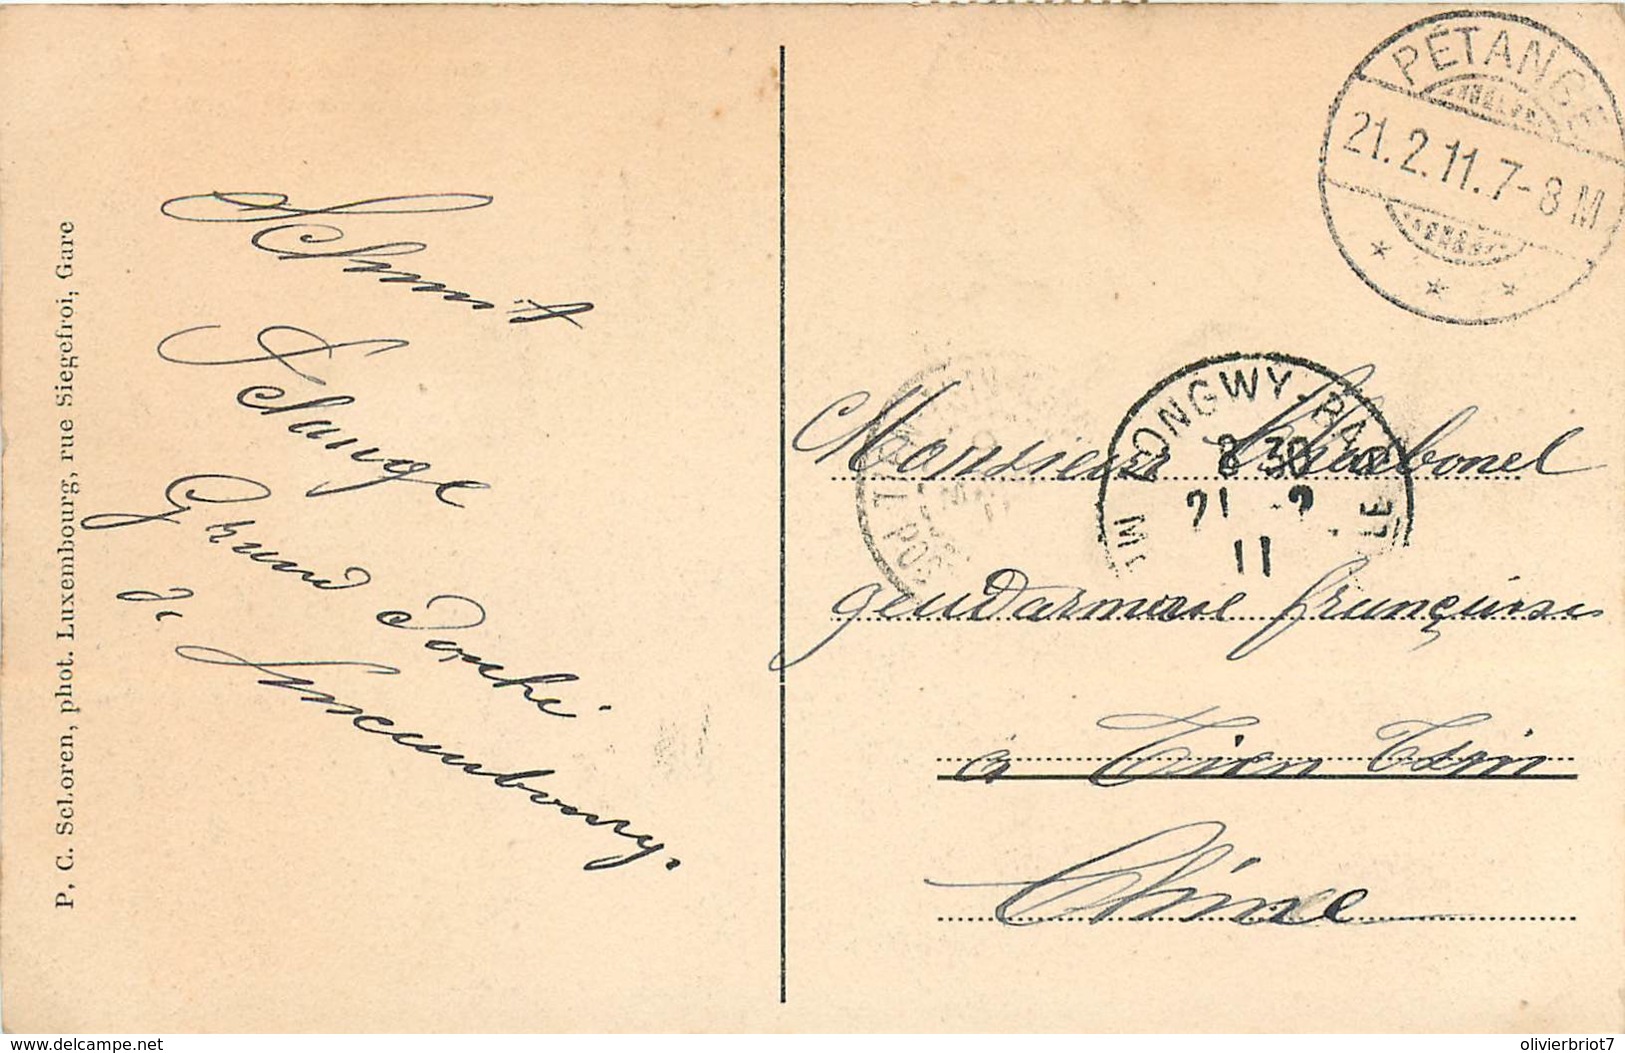 P. C. Schoren, phot. Luxembourg, rue Siegefroi, Gare
Schmit
Grand Duché
de Luxembourg.
PÉTANGE
21.2.11.7-8 M
LONGWY-BAS
8 30
21 2
11
Monsieur
gendarmerie française
à Tien Tsin
Chine
delcampe.net
olivierbriot7